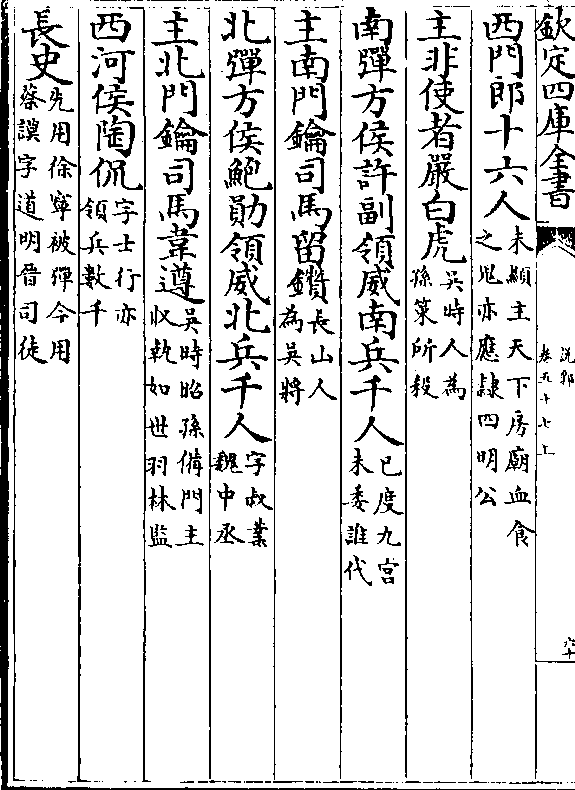 欽定四庫全書
說郛
卷五十七上
六十
西門郎十六人未顯主天下房廟血食之鬼亦應隸四明公
主非使者嚴白虎吳時人為孫策所殺
南彈方侯許副領威南兵千人已度九宮未委誰代
主南門鑰司馬留鑽長山人為吳將
北彈方侯鮑勛領威北兵千人字叔業魏中丞
主北門鑰司馬韋遵吳時昭孫備門主収執如世羽林監
西河侯陶侃字士行亦領兵數千
長史先用徐寧被彈今用蔡謨字道明晉司徒